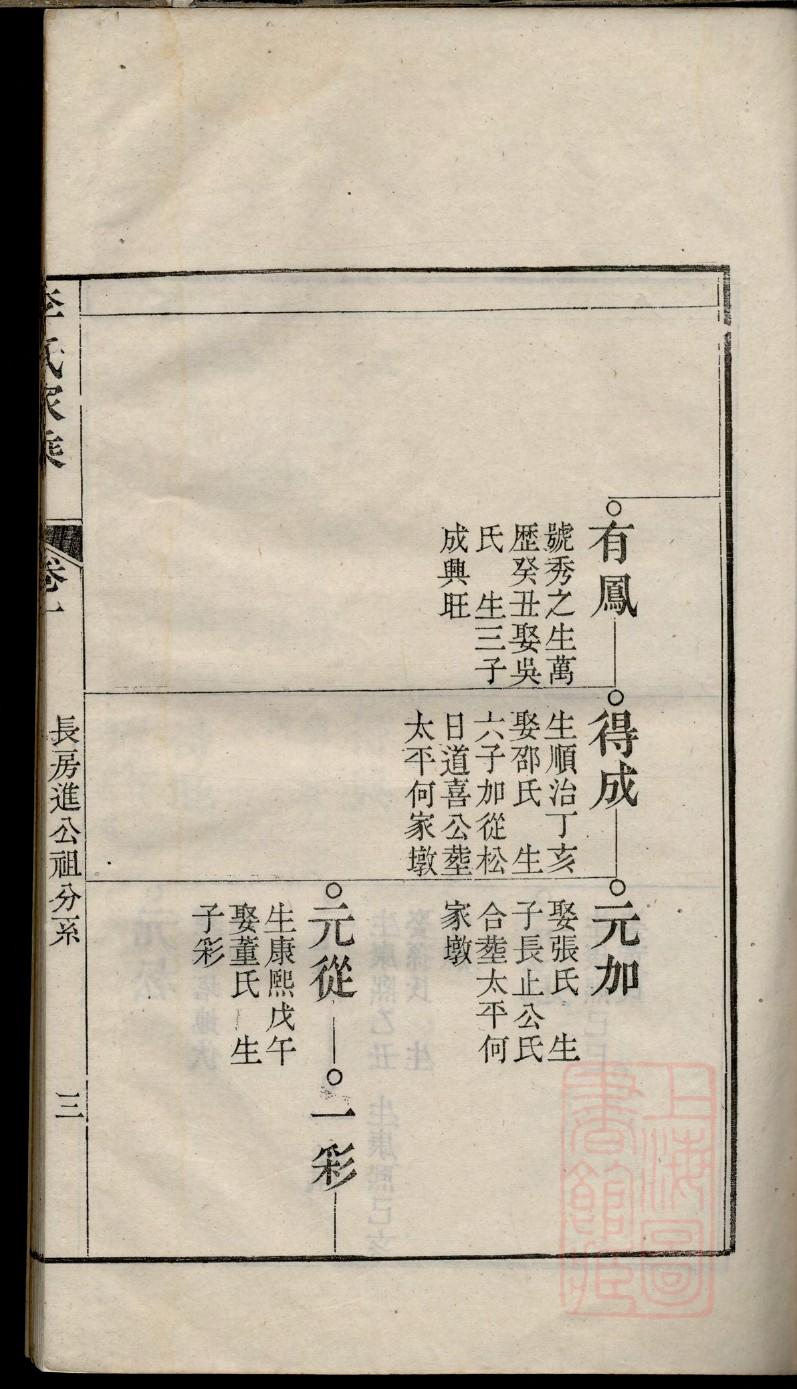 有鳳
號秀之生萬
歷癸丑娶吳
氏 生三子
成興旺
得成
生順治丁亥
娶邵氏 生
六子加從松
日道喜公塟
太平何家墩
元加
娶張氏 生
子長止公氏
合塟太平何
家墩
元從
生康熙戊午
娶董氏 生
子彩
一彩
李氏家乘
卷一
長房進公祖分系
三
上海圖
書館藏